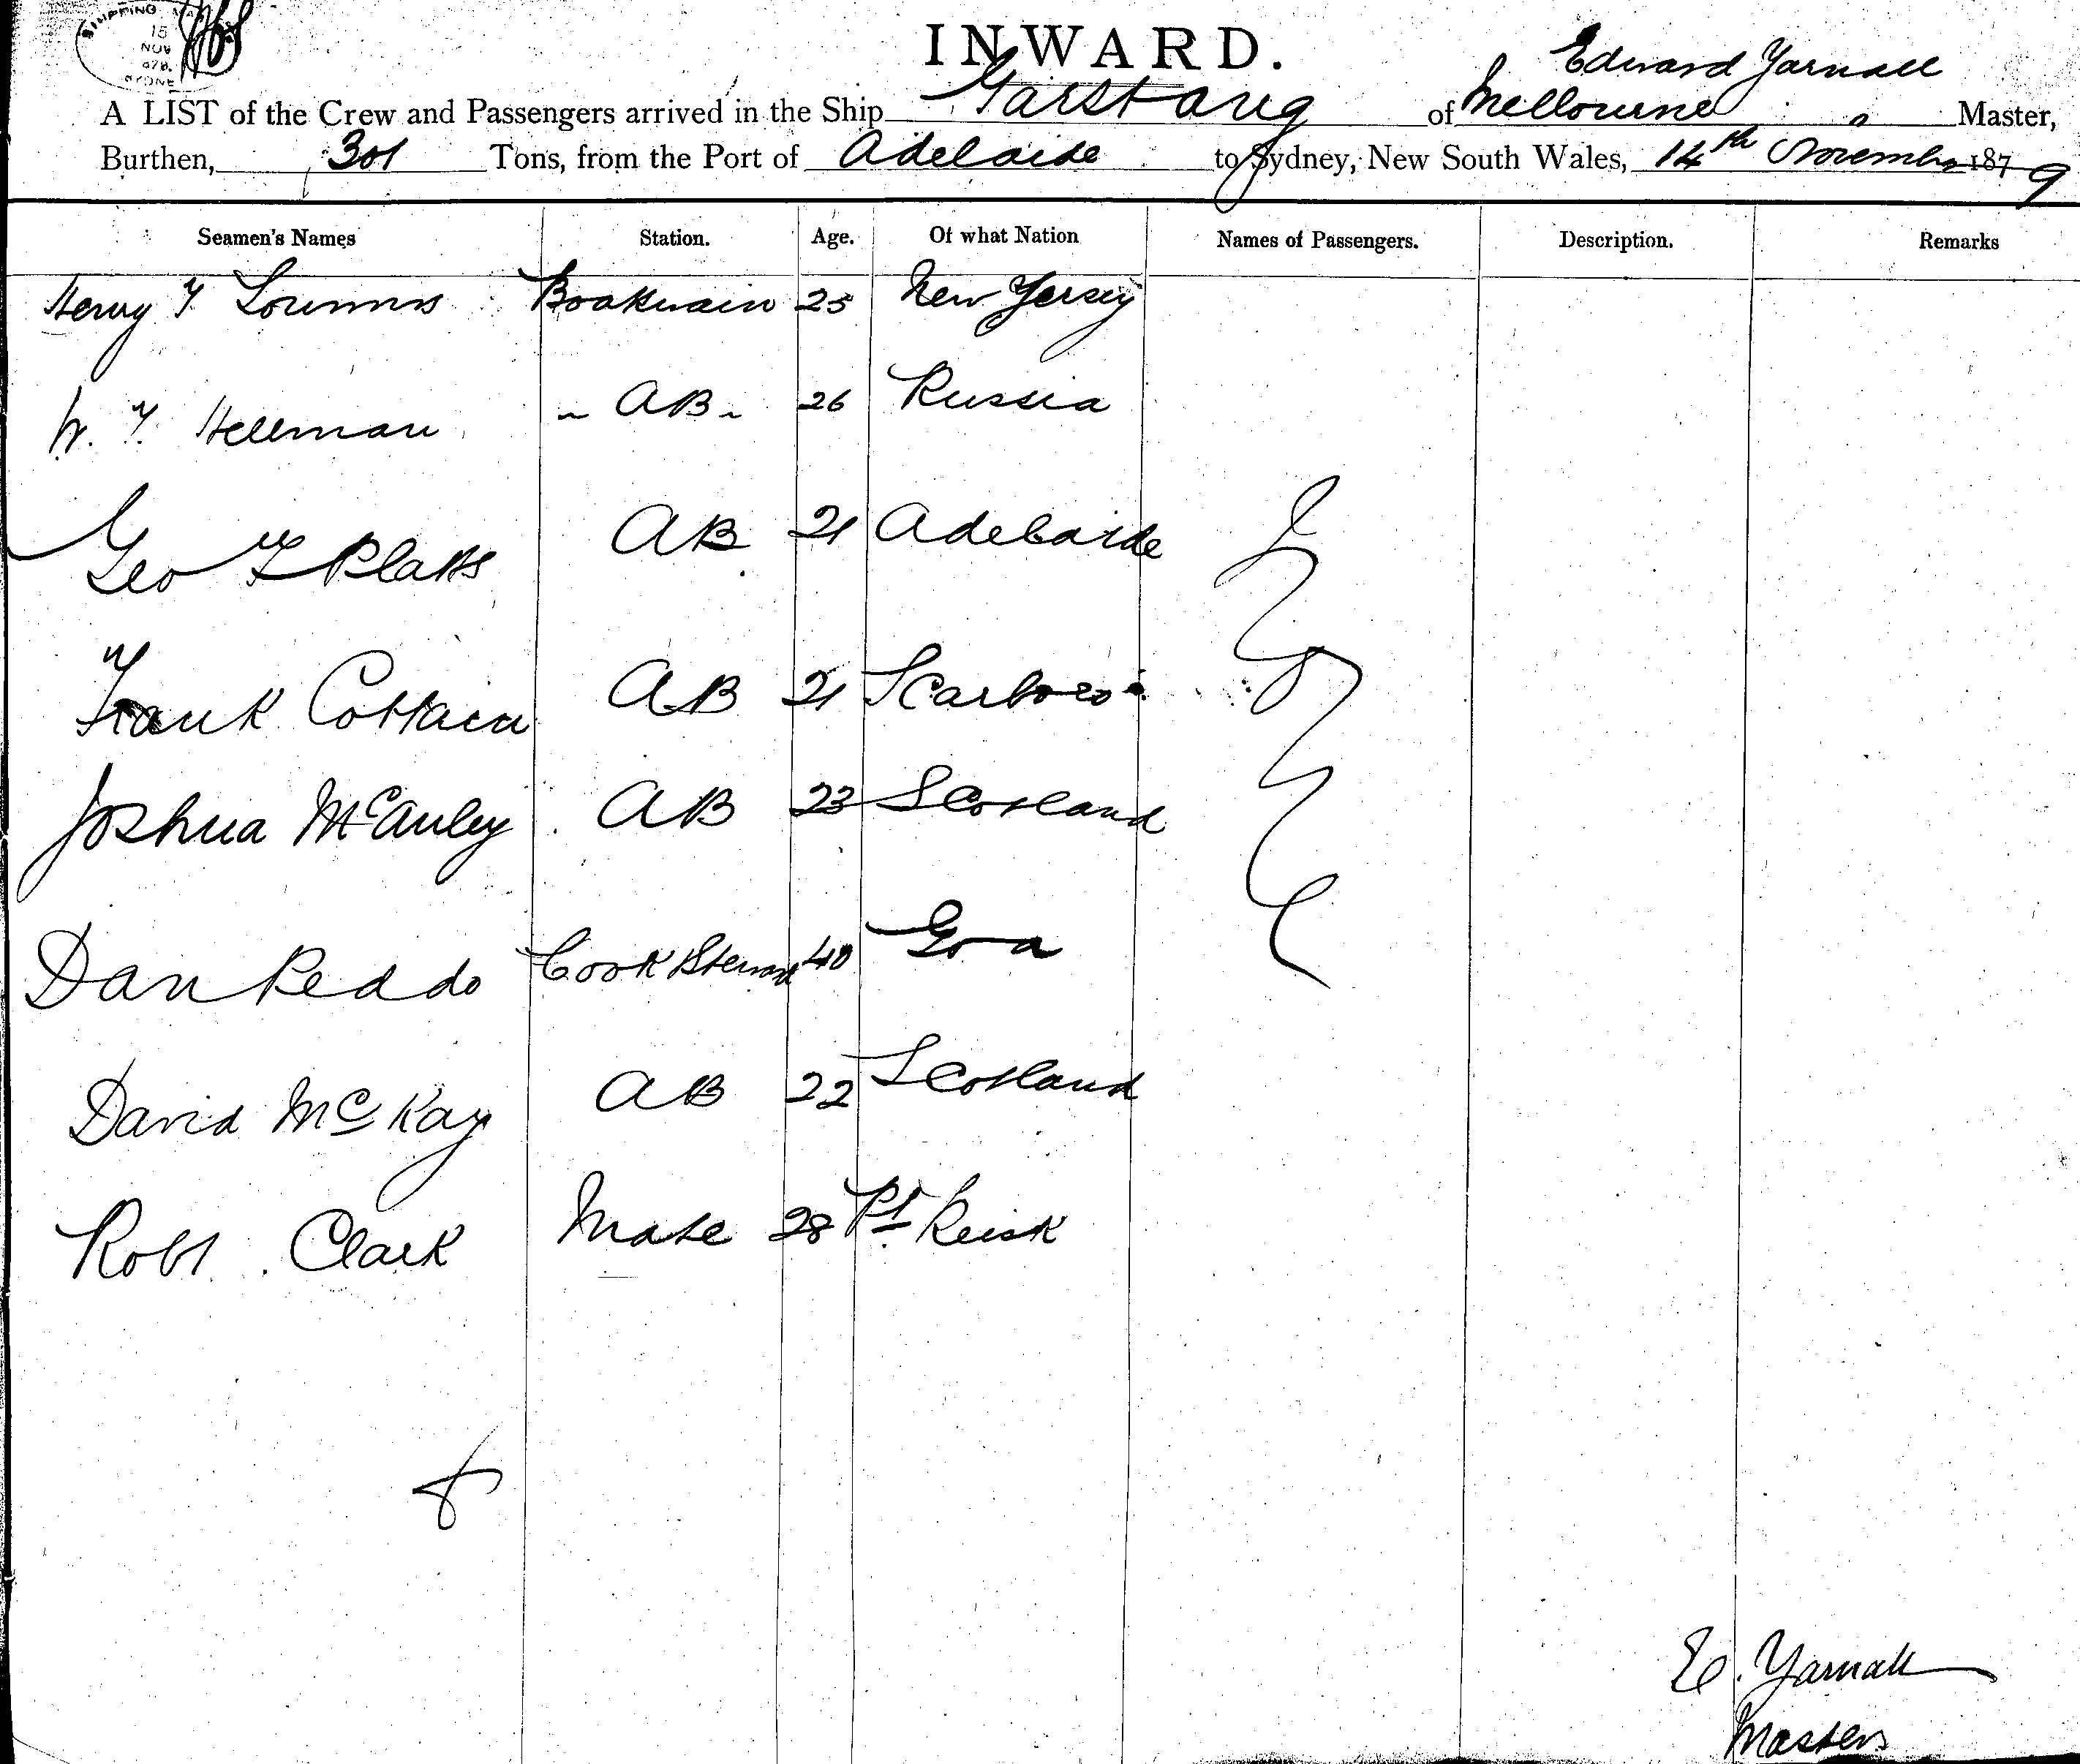 SHIPPING MA
15
NOV
SYDNE
INWARD.
Edward Yarnall
A LIST of the Crew and Passengers arrived in the Ship Garstang of Melbourne Master,
Burthen, 301 Tons, from the Port of Adelaide to Sydney, New South Wales, 14th November 1879
Seamen's Names Station. Age. Of what Nation Names of Passengers. Description. Remarks
Henry F Loumis Boatswain 25 New Jersey
W. F. Hellman - AB - 26 Russia
Geo F Platts AB 21 Adelaide
Frank Cottain AB 21 Scarboro
Joshua McAuley AB 23 Scotland
Dan Peddo Cook & Steward 40 Goa
David McKay AB 22 Scotland
Robt Clark Mate 28 Pt
8
E. Yarnall
Master